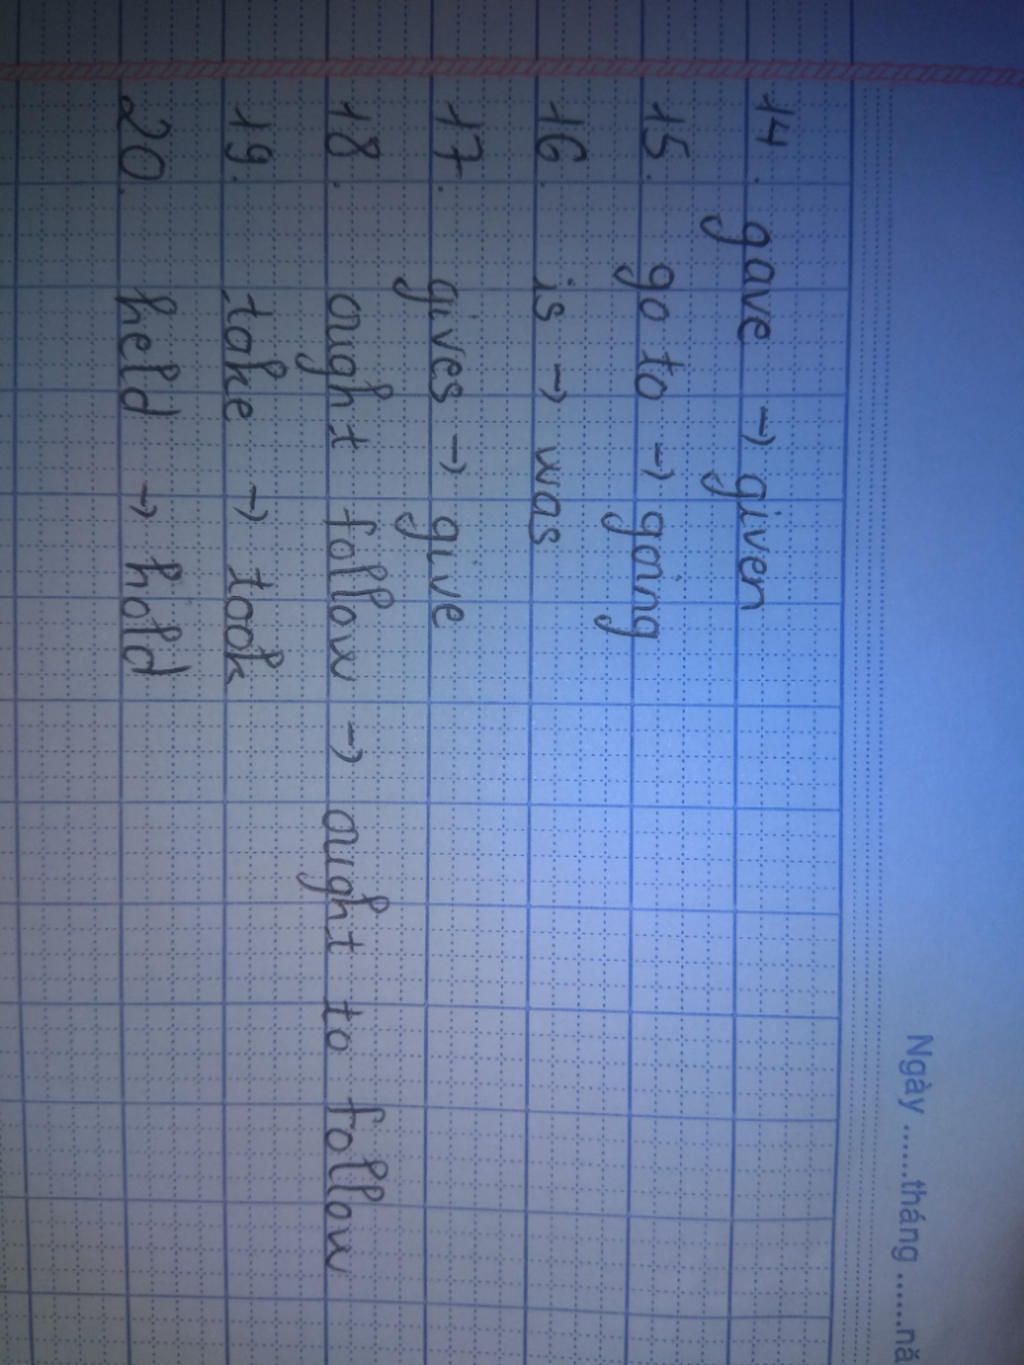 Ngày ......tháng ......nă
14. gave → given
15. go to → going
16. is → was
17. gives → give
18. ought follow → ought to follow
19. take → took
20. held → hold